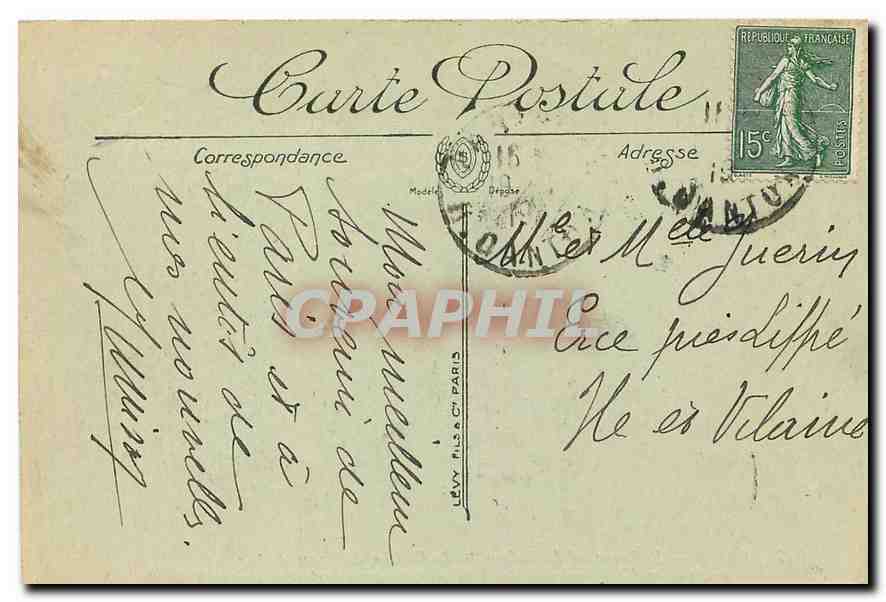 Carte Postale
RÉPUBLIQUE FRANÇAISE
15c
POSTES
Correspondance
Adresse
Modèle Déposé
LÉVY FILS & Cie PARIS
Mon meilleur
souvenir de
Paris et à
bientôt de
nos nouvelles.
Mlle et Melle Guerin
Erce près Liffré
Ile et Vilaine
CPAPHIL